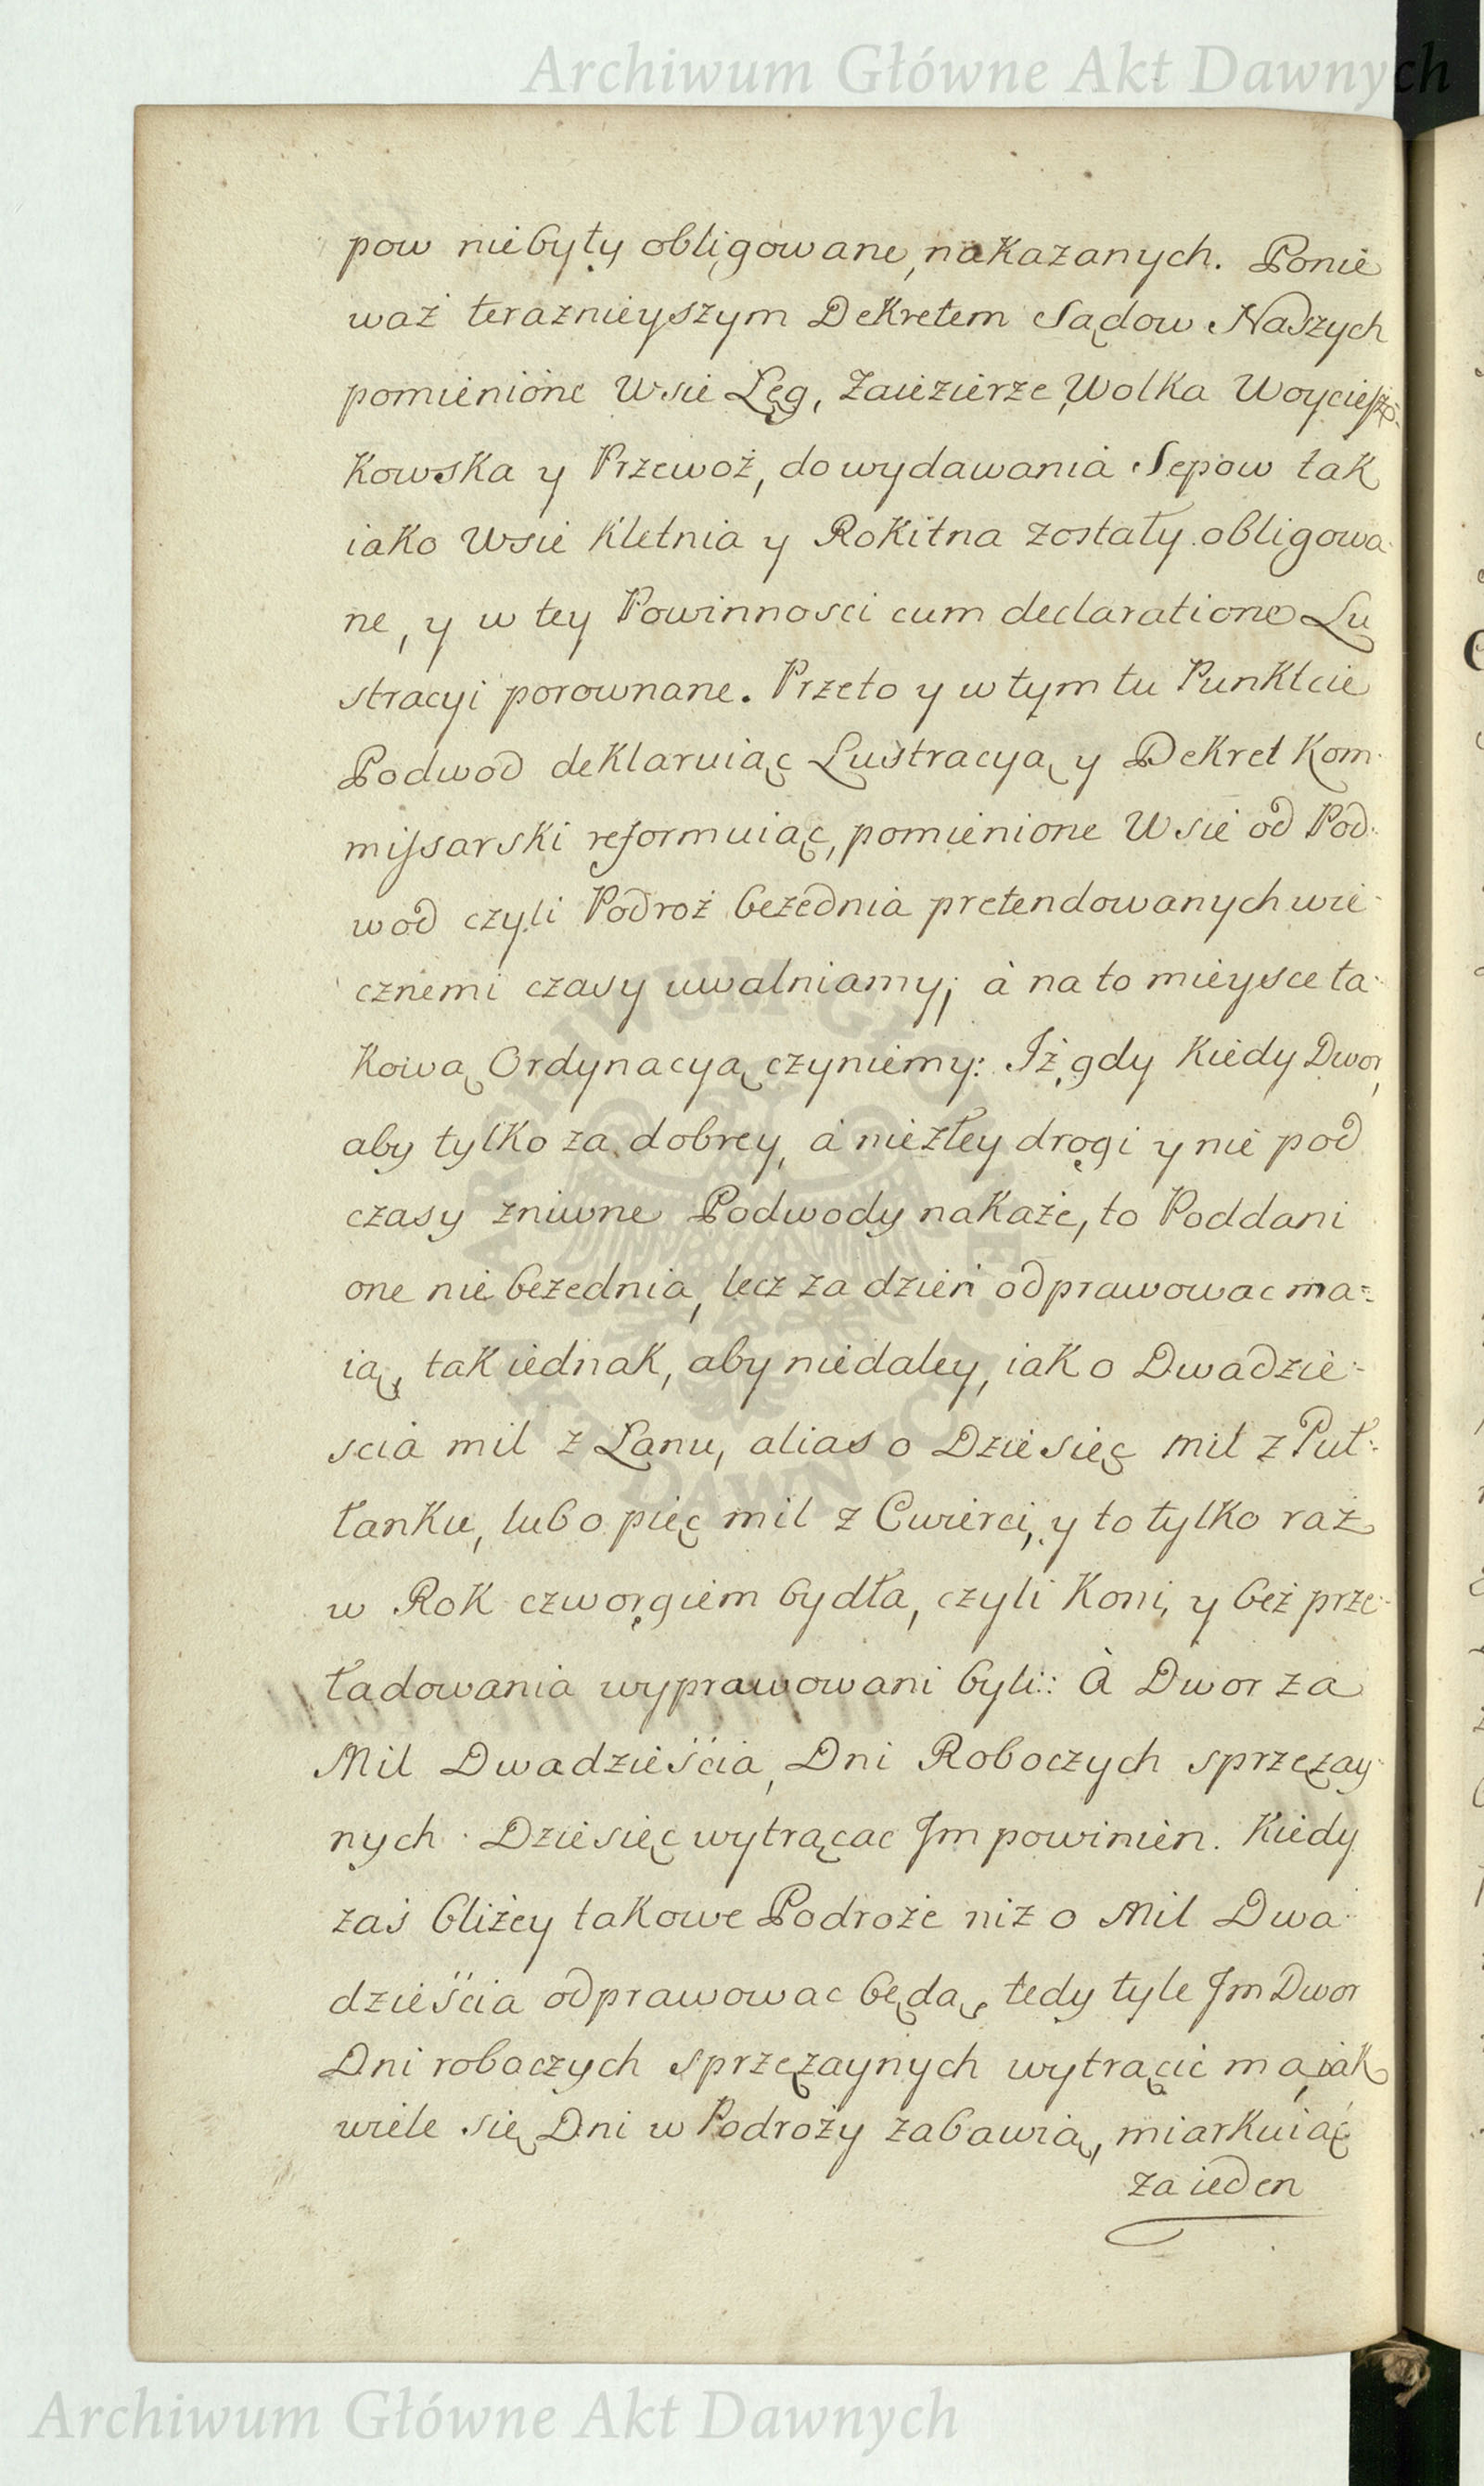 Archiwum Główne Akt Dawnych
pow niebyły obligowane, nakazanych. Ponie
waż teraznieyszym Dekretem Sądow Naszych
pomienione Wsie Lęg, Zaiezierze, Wolka
kowska y Przewoż, do wydawania Sepow tak
iako Wsie Kletnia y Rokitna zostały obligowa-
ne, y w tey Powinnosci cum declaratione Lu
stracyi porownane. Przeto y w tym tu Punkcie
Podwod deklaruiąc Lustracyą y Dekret Kom-
missarski reformuiąc, pomienione Wsie od Pod-
wod czyli Podroż bezednia pretendowanych wie-
cznemi czasy uwalniamy; à na to mieysce ta-
kową Ordynacyą czyniemy: Iż gdy kiedy Dwor,
aby tylko za dobrey, à niezłey drogi y nie pod
czasy zniwne Podwody nakaże, to Poddani
one nie bezednia, lecz za dzień odprawowac ma=
ią, tak iednak, aby niedaley, iak o Dwadzie-
scia mil z Lanu, alias o Dziesięc mil z Puł-
łanku, lub o pięc mil z Cwierci, y to tylko raz
w Rok czworgiem bydła, czyli Koni, y beż prze-
ładowania wyprawowani byli: À Dwor za
Mil Dwadzieścia, Dni Roboczych sprzężay-
nych Dziesięc wytrącac Im powinien. Kiedy
zaś bliżey takowe Podroże niz o Mil Dwa-
dzieścia odprawowac będą, tedy tyle Im Dwor
Dni roboczych sprzężaynych wytrącic ma, iak
wiele się Dni w Podroży zabawią, miarkuiąc
za ieden
ARCHIWUM GŁÓWNE
AKT DAWNYCH
Archiwum Główne Akt Dawnych